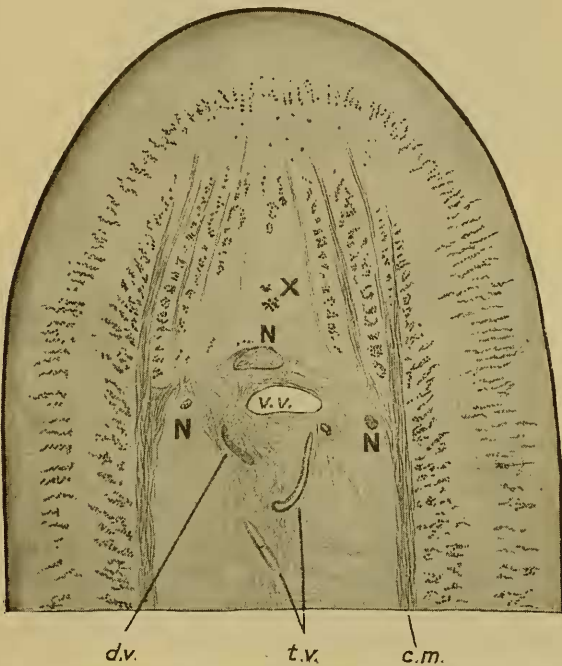 X
N
v.v.
N
N
d.v.
t.v.
c.m.